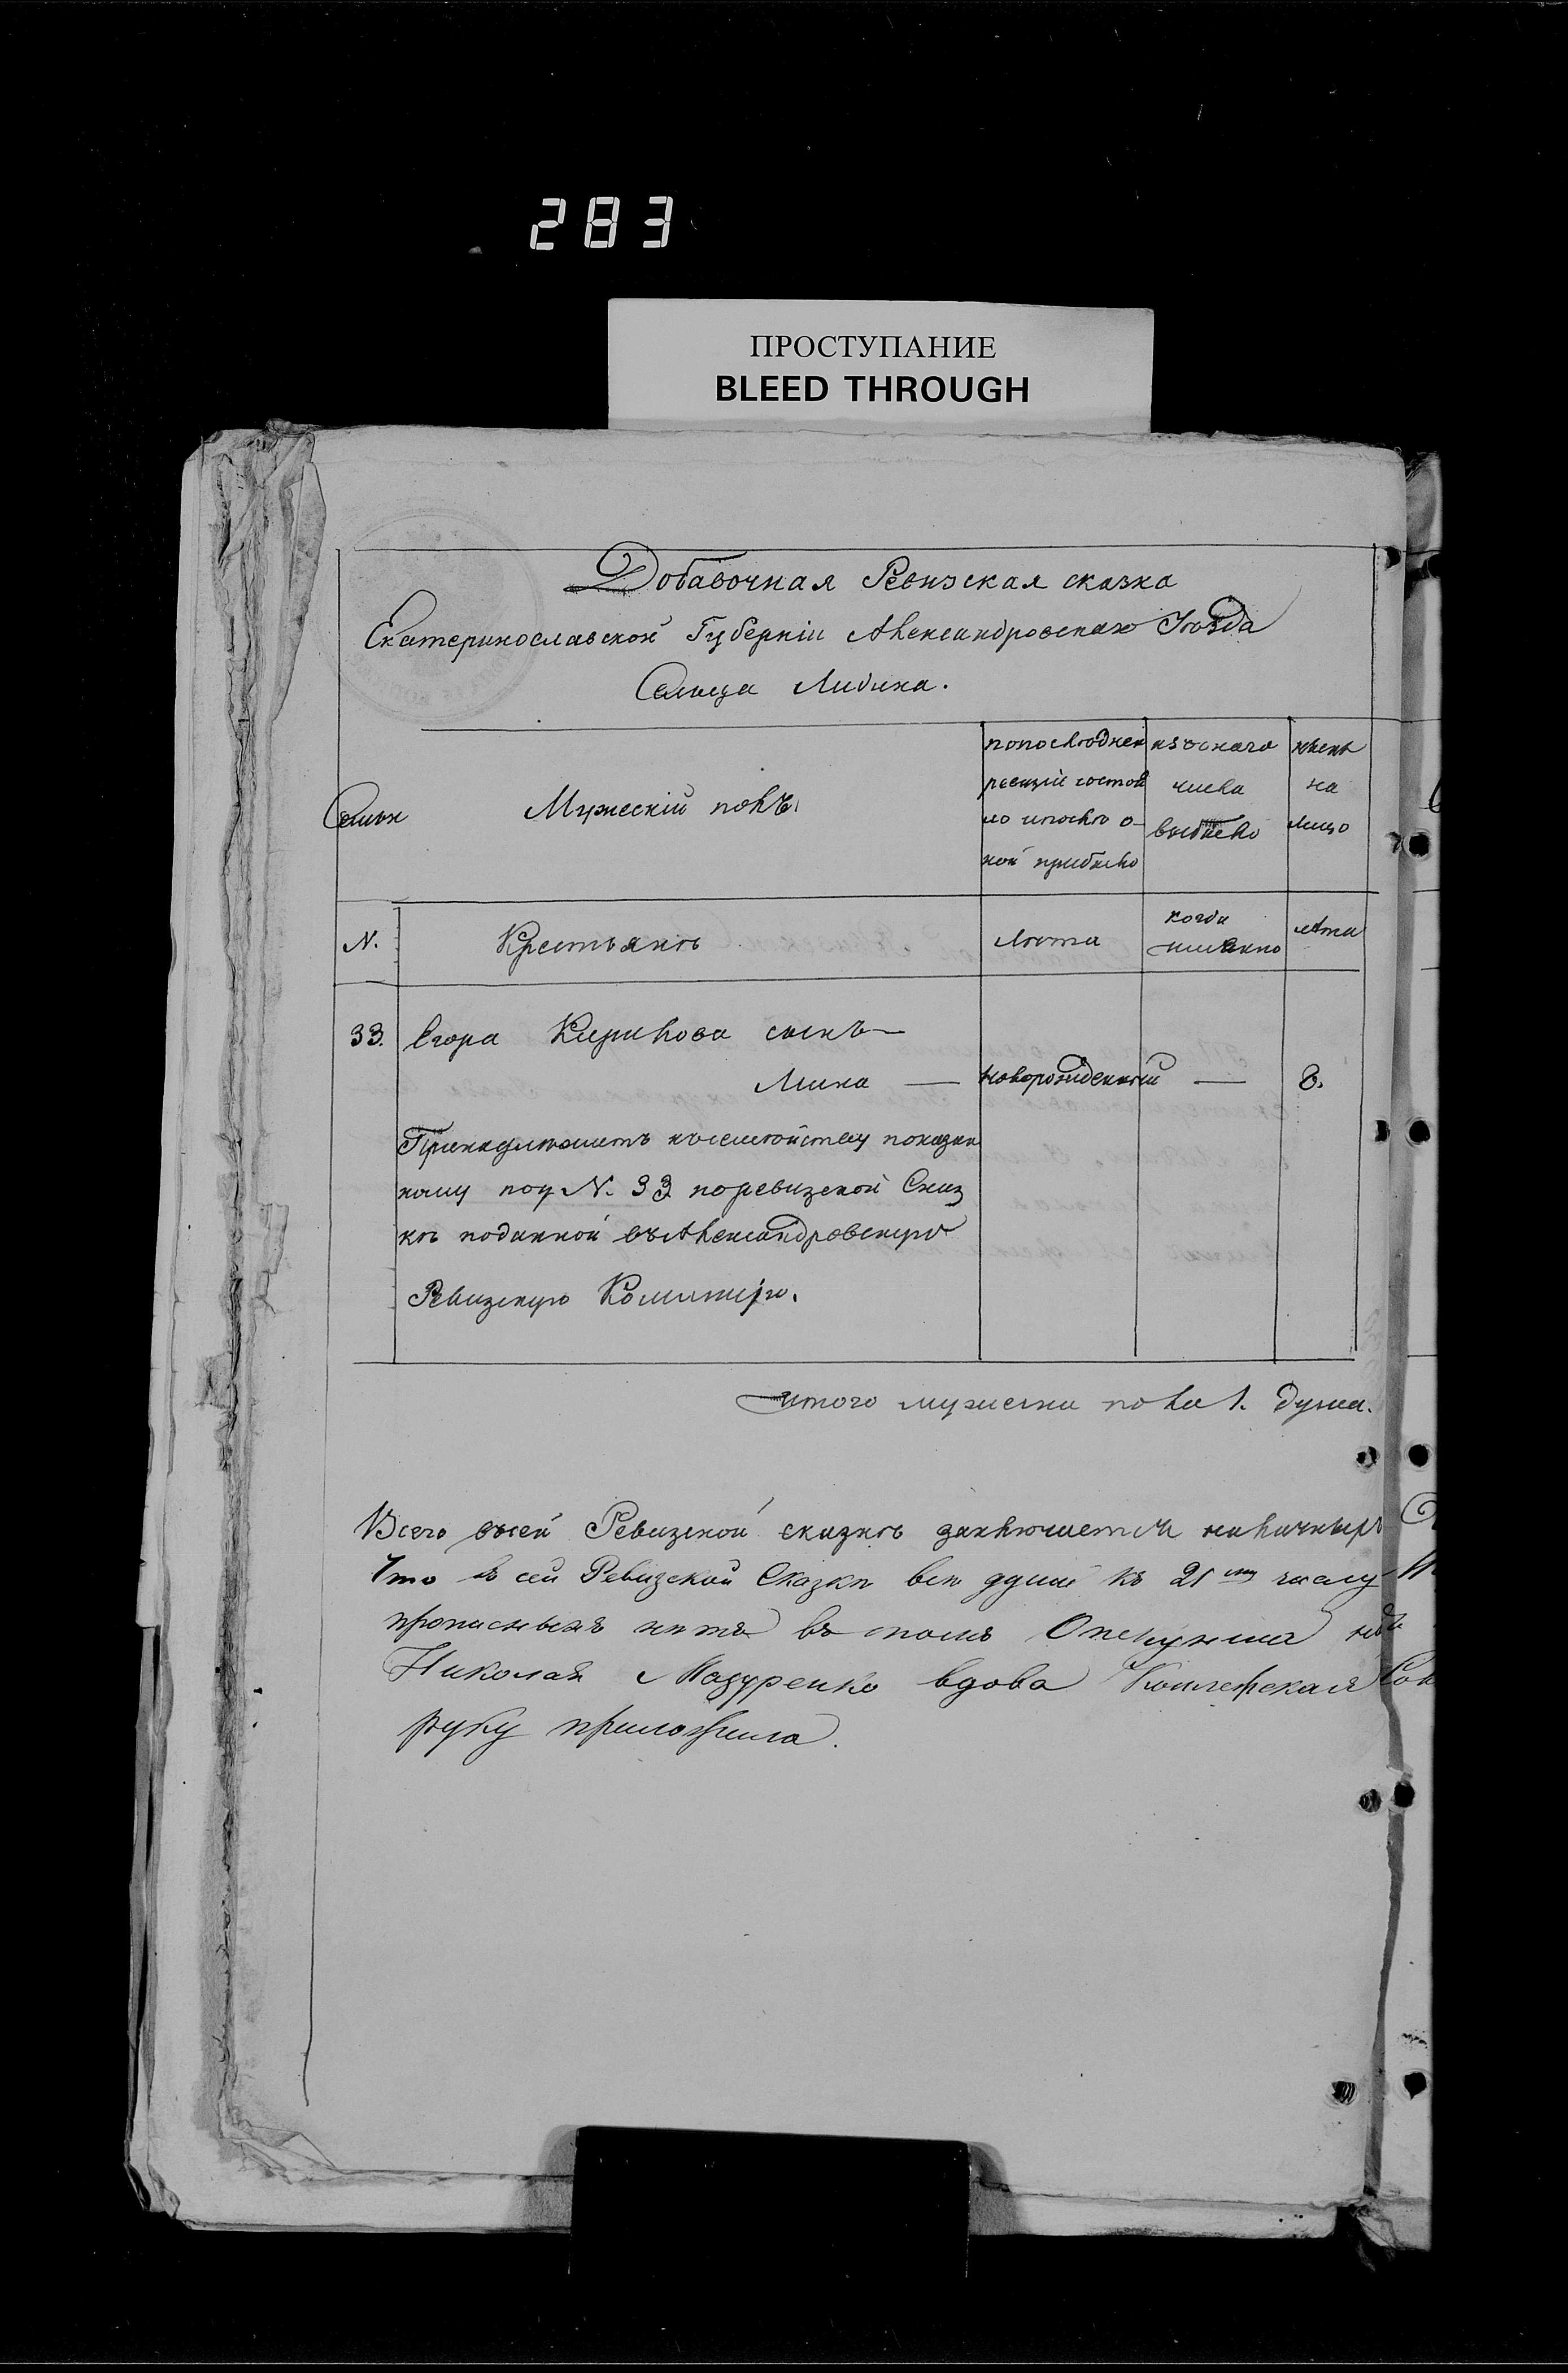 283
ПРОСТУПАНИЕ
BLEED THROUGH
Добавочная Ревизская сказка
Екатеринославской Губерніи Александровскаго Уѣзда
Сельца Лидина.
Семьи
Мужескій полъ.
попослѣдней
ревизіи состоя
ло ипослѣ о-
ной прибыло
изъоного
числа
выбыло
нынѣ
на
лицо
N.
Крестьянъ
Лѣта
когда
именно
Лѣта
33. Егора Кирилова сынъ —
Мина — новорожденный — 8.
Принадлежитъ къ семейству показан
ному под N. 33 поревизской Сказ
кѣ поданной въ Александровскую
Ревизскую Комитсію.
итого мужеска пола 1. душа.
Всего въсей Ревизской сказкѣ заключается наличныхъ
Что въ сей Ревизской Сказки всѣ души къ 21му числу
прописныхъ нѣтъ въ томъ Опекунша
Николай Мазуренко вдова
руку приложила.